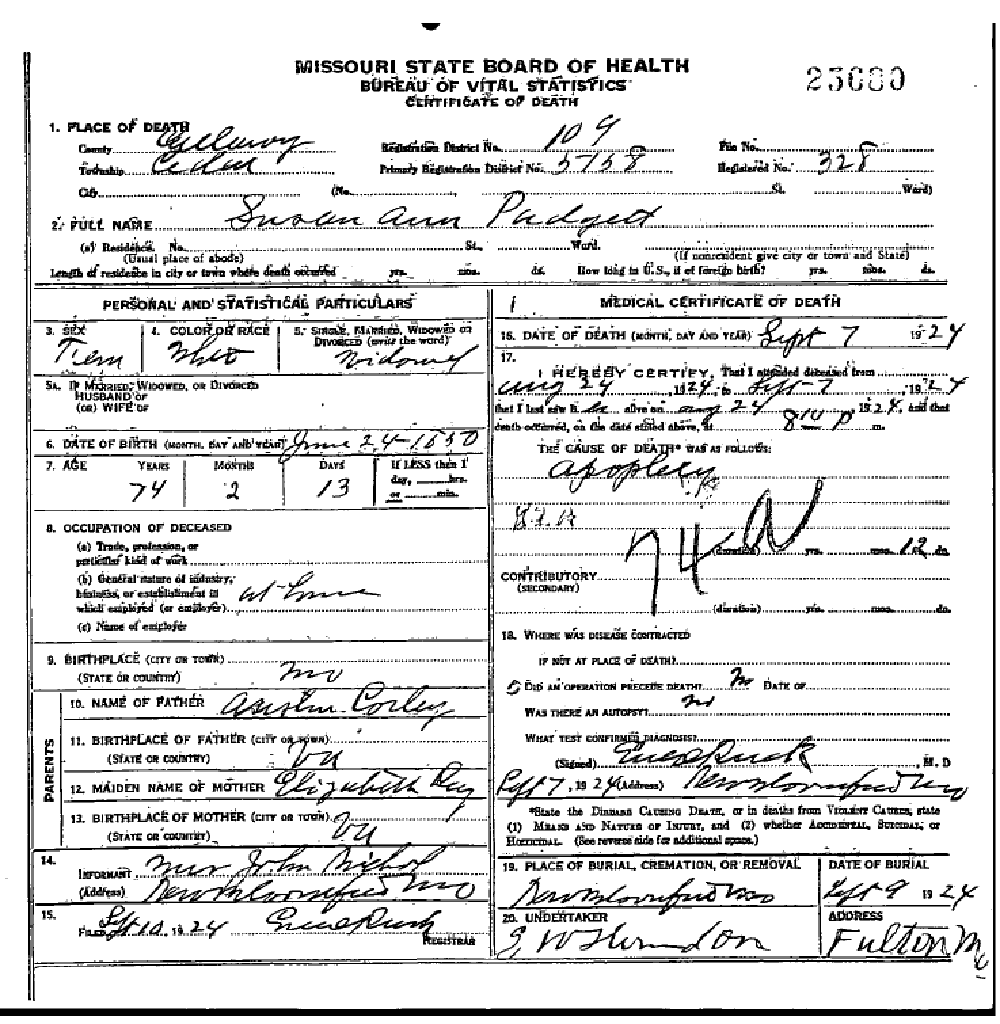 MISSOURI STATE BOARD OF HEALTH
BUREAU OF VITAL STATISTICS
CERTIFICATE OF DEATH
1. PLACE OF DEATH
County Registration District No. 109 File No.
Township Cedar Primary Registration District No. 5158 Registered No. 328
City (No. St. Ward)
2. FULL NAME Susan Ann Padgett
(a) Residence. No. St., Ward.
(Usual place of abode) (If nonresident give city or town and State)
Length of residence in city or town where death occurred yrs. mos. ds. How long in U.S., if of foreign birth? yrs. mos. ds.
PERSONAL AND STATISTICAL PARTICULARS
3. SEX 4. COLOR OR RACE 5. SINGLE, MARRIED, WIDOWED OR
DIVORCED (write the word)
Fem Widowed
5A. IF MARRIED, WIDOWED, OR DIVORCED
HUSBAND OF
(OR) WIFE OF
6. DATE OF BIRTH (MONTH, DAY AND YEAR) June 24-1850
7. AGE YEARS MONTHS DAYS If LESS than 1
day, hrs.
or min.
74 2 13
8. OCCUPATION OF DECEASED
(a) Trade, profession, or
particular kind of work
(b) General nature of industry,
business, or establishment in
which employed (or employer) at home
(c) Name of employer
9. BIRTHPLACE (CITY OR TOWN)
(STATE OR COUNTRY) Mo
PARENTS
10. NAME OF FATHER Corley
11. BIRTHPLACE OF FATHER (CITY OR TOWN)
(STATE OR COUNTRY) Va
12. MAIDEN NAME OF MOTHER Elizabeth
13. BIRTHPLACE OF MOTHER (CITY OR TOWN)
(STATE OR COUNTRY) Va
14.
INFORMANT Mrs John
(Address) New Bloomfield Mo
15.
FILED Sept 10, 1924
REGISTRAR
25080
MEDICAL CERTIFICATE OF DEATH
16. DATE OF DEATH (MONTH, DAY AND YEAR) Sept 7 1924
17.
I HEREBY CERTIFY, That I attended deceased from
Aug 24, 1924, to Sept-7, 1924
that I last saw h er alive on Aug 24, 1924, and that
death occurred, on the date stated above, at P m.
THE CAUSE OF DEATH* WAS AS FOLLOWS:
Apoplexy
74 a
(duration) yrs. mos. 12 ds.
CONTRIBUTORY
(SECONDARY)
(duration) yrs. mos. ds.
18. WHERE WAS DISEASE CONTRACTED
IF NOT AT PLACE OF DEATH?
DID AN OPERATION PRECEDE DEATH? No DATE OF
WAS THERE AN AUTOPSY? No
WHAT TEST CONFIRMED DIAGNOSIS?
(Signed) , M. D
Sept 7, 1924 (Address) New Bloomfield Mo
*State the DISEASE CAUSING DEATH, or in deaths from VIOLENT CAUSES, state
(1) MEANS AND NATURE OF INJURY, and (2) whether ACCIDENTAL, SUICIDAL, or
HOMICIDAL. (See reverse side for additional space.)
19. PLACE OF BURIAL, CREMATION, OR REMOVAL DATE OF BURIAL
New Bloomfield Mo Sept 9 1924
20. UNDERTAKER ADDRESS
S W Herndon Fulton Mo